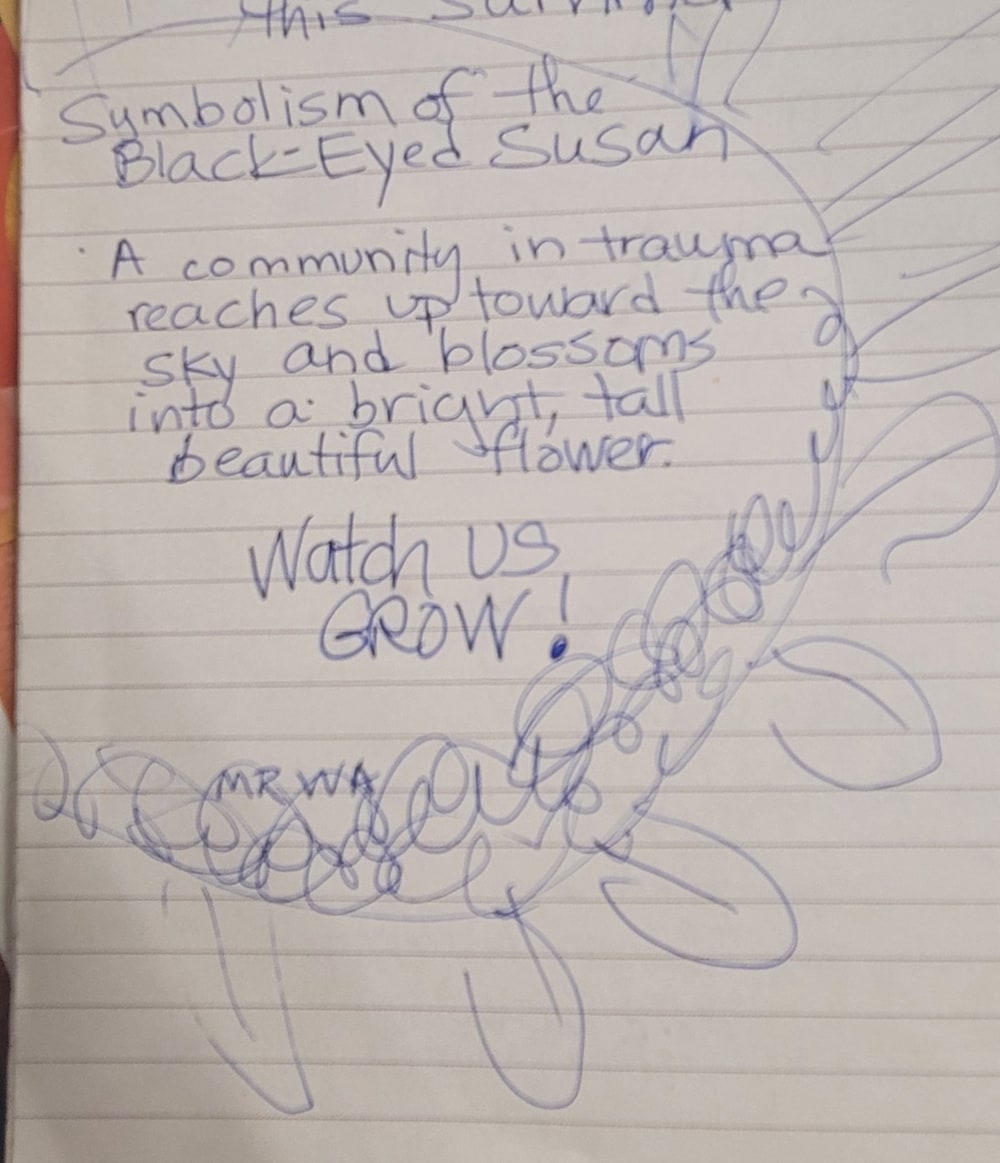 this
Symbolism of the
Black-Eyed Susan
· A community in trauma
reaches up toward the
sky and blossoms
into a bright, tall
beautiful flower.
Watch US
GROW!
MR WA